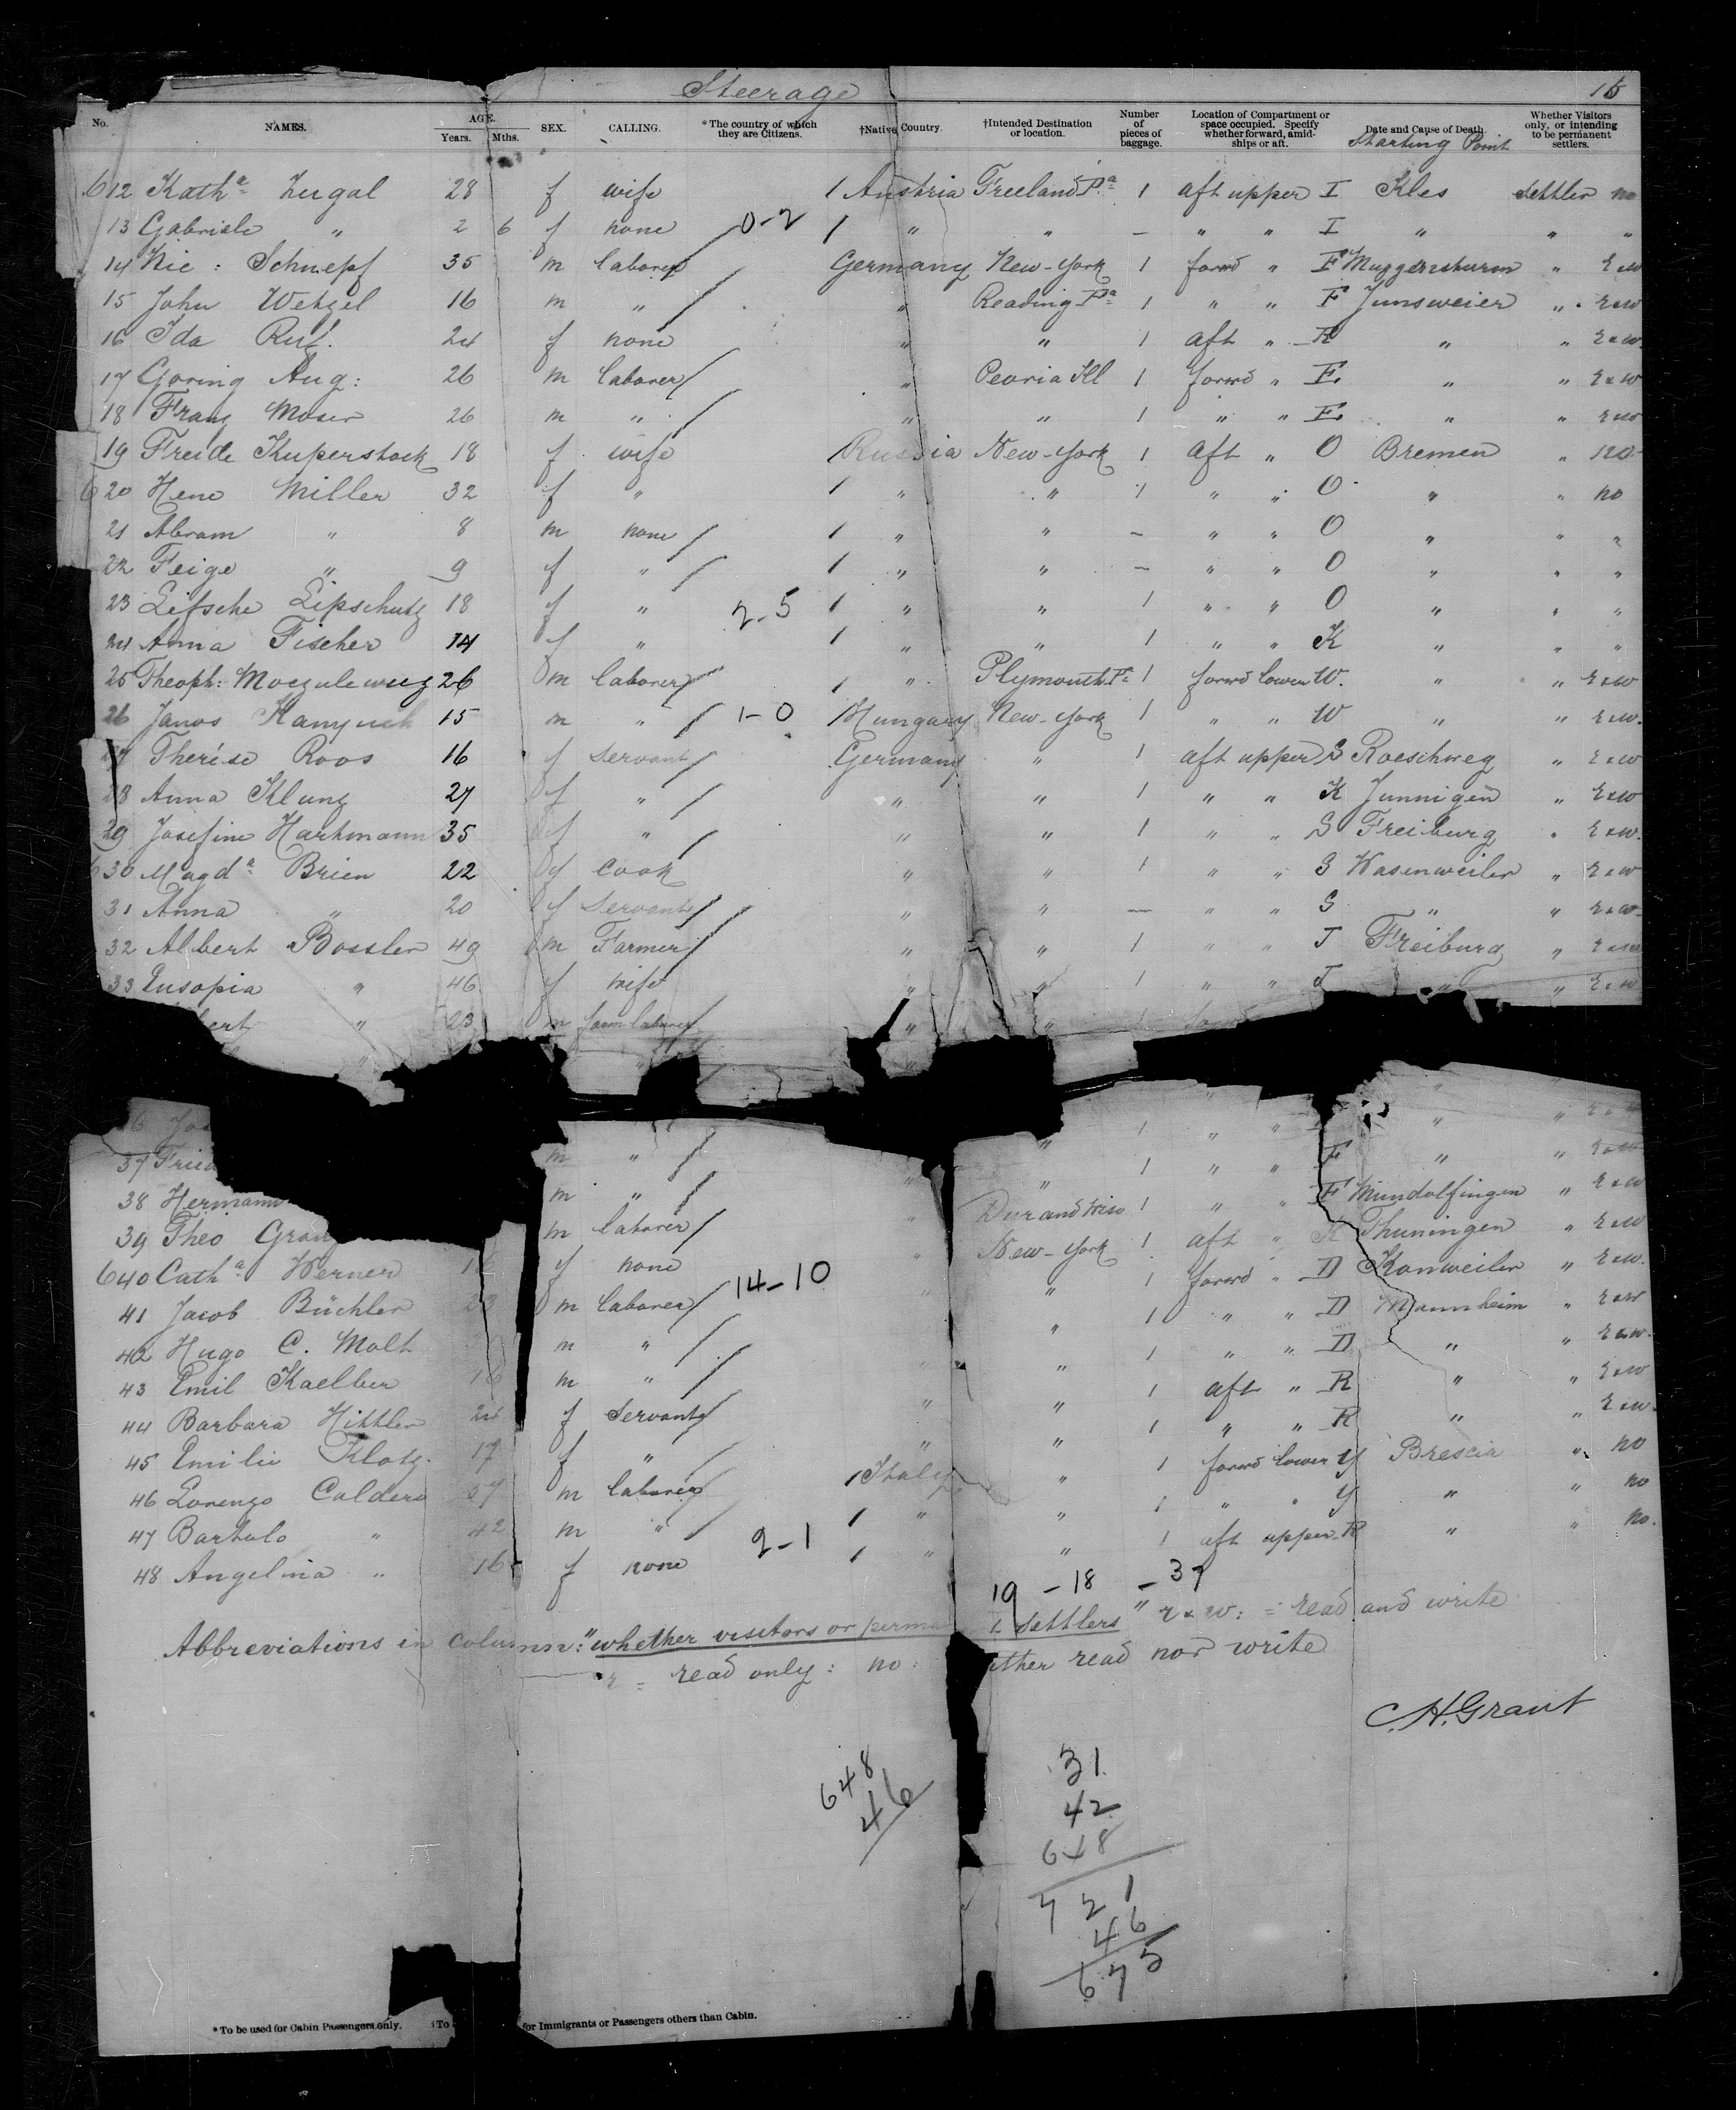 Steerage 15
No. NAMES. AGE. Years. Mths. SEX. CALLING. *The country of which they are Citizens. †Native Country. †Intended Destination or location. Number of pieces of baggage. Location of Compartment or space occupied. Specify whether forward, amidships or aft. Date and Cause of Death. Starting Point Whether Visitors only, or intending to be permanent settlers.
612 Kathª Zugal 28 f wife 1 Austria Freeland Pª 1 aft upper I Kles Settler no
13 Gabriele " 2 6 f none / 0-2 1 " " — " " I " " "
14 Nic: Schnepf 35 m laborer / Germany New-York 1 forwd " F Muggensturm " r&w
15 John Wetzel 16 m " / " Reading Pª 1 " " F Junsweier " r&w
16 Ida Ruf. 24 f none " " 1 aft " R " " r&w.
17 Goring Aug: 26 m laborer / " Peoria Ill 1 forwd " E. " " r&w
18 Franz Moser 26 m " / " " 1 " " E. " " r&w
19 Freide Kuperstock 18 f wife 1 Russia New-York 1 aft " O Bremen " no
620 Hene Miller 32 f " 1 " " 1 " " O " " no
21 Abram " 8 m none / 1 " " — " " O " " "
22 Feige " 9 f " / 1 " " — " " O " " "
23 Lifsche Lipschutz 18 f " 2-5 1 " " 1 " " O " " "
24 Anna Fischer 14 f " 1 " " 1 " " K " " "
25 Theoph: 26 m laborer / 1 " Plymouth Pª 1 forwd lower W. " " r&w
26 Janos 15 m " / 1-0 1 Hungary New-York 1 " " W " " r&w.
27 Therése Roos 16 f Servant / Germany " 1 aft upper S Roeschweg " r&w
28 Anna Klung 27 f " / " " 1 " " K Junnigen " r&w
29 Josefine Hartmann 35 f " / " " 1 " " S Freiburg " r&w.
630 Magdª Brien 22 f Cook " " 1 " " S Wasenweiler " r&w
31 Anna " 20 f Servant / " " — " " S " " r&w
32 Albert Bossler 49 m Farmer / " " 1 " " J Freiburg " r&w
33 Eusopia " 46 f wife " " 1 " " J " " r&w
bert " 23 m farm laborer / " " 1
" " "
6 Jos " 1 " " " " r&w
37 Fried m " / " " 1 " " F " " r&w
38 Hermann m " / " Durand Wisc 1 " " F Mundolfingen " r&w
39 Theo Gran m laborer / " New-York 1 aft " K Thuningen " r&w
640 Cathª Werner f none " " 1 forwd " D Konweiler " r&w.
41 Jacob Büchler 23 m laborer / 14-10 " " 1 " " D Mannheim " r&w
42 Hugo C. Molt m " / " 1 " " D " " r&w.
43 Emil Kaelber 16 m " / " " 1 aft " R " " r&w
44 Barbara Hittler 24 f Servant / " " 1 " " R " " r&w.
45 Emilie Klotz. 17 f " / " " 1 forwd lower Y Brescia " no
46 Lorenzo Caldera 37 m laborer / 1 Italy " 1 " " Y " " no
47 Bartolo " 42 m " / 1 " " 1 aft upper R " " no.
48 Angelina " 16 f none 2-1 1 " "
19 - 18 - 37
Abbreviations in column: "whether visitors or perma t Settlers" r&w: = read and write
r = read only: no: ither read nor write
C. H. Grant
648
46
31
42
648
721
46
675
*To be used for Cabin Passengers only. †To for Immigrants or Passengers others than Cabin.